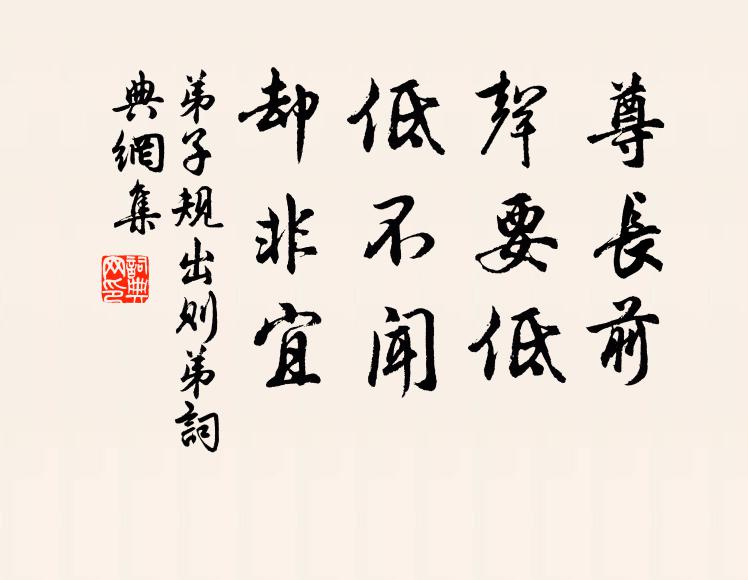 尊長前
聲要低
低不聞
卻非宜
弟子規出則弟詞
典網集
詞典
网印